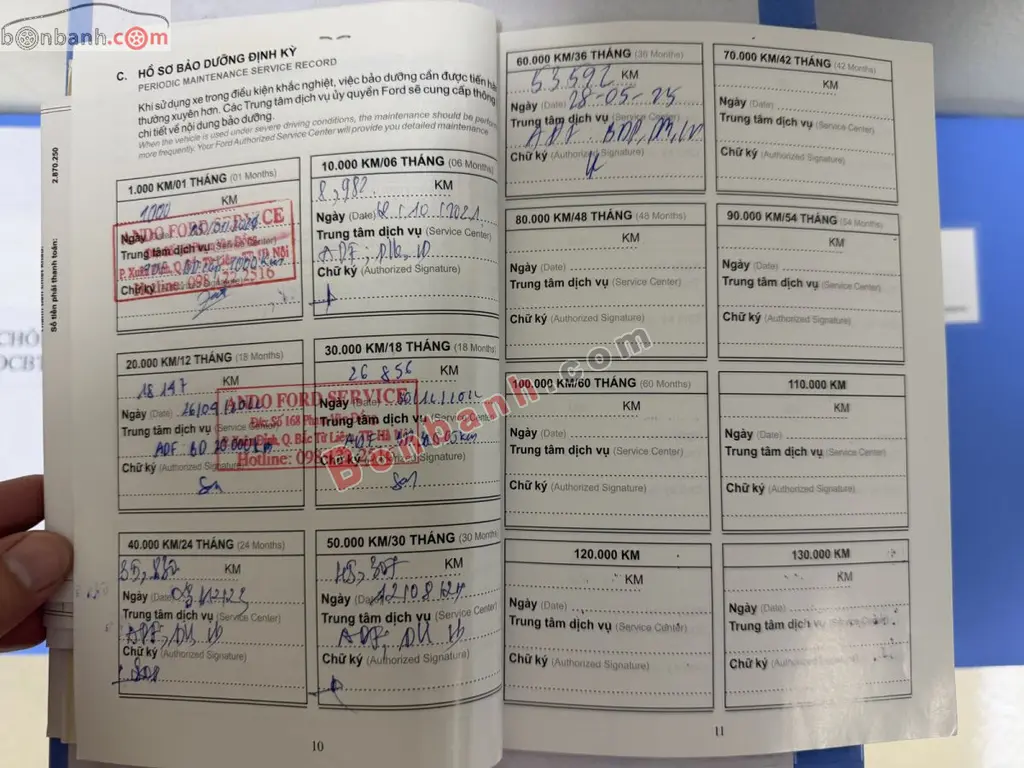 bonbanh.com
C. HỒ SƠ BẢO DƯỠNG ĐỊNH KỲ
PERIODIC MAINTENANCE SERVICE RECORD
Khi sử dụng xe trong điều kiện khắc nghiệt, việc bảo dưỡng cần được tiến
thường xuyên hơn. Các Trung tâm dịch vụ ủy quyền Ford sẽ cung cấp thông
chi tiết về nội dung bảo dưỡng.
When the vehicle is used under severe driving conditions, the maintenance should be
more frequently. Your Ford Authorized Service Center will provide you detailed maintenance
2.870.250
Số tiền phải thanh toán:
1.000 KM/01 THÁNG (01 Months)
1000 KM
Ngày
Trung tâm dịch vụ
Chữ ký
ANDO FORD SERVICE
10.000 KM/06 THÁNG (06 Months)
8,982 KM
Ngày (Date)
Trung tâm dịch vụ (Service Center)
Chữ ký (Authorized Signature)
20.000 KM/12 THÁNG (18 Months)
18 197 KM
Ngày (Date)
Trung tâm dịch vụ
ADF BD 20.000 KM
Chữ ký (Authorized Signature)
30.000 KM/18 THÁNG (18 Months)
26 856 KM
Ngày
Trung tâm dịch vụ (Service Center)
(Authorized Signature)
ANDO FORD SERVICE
Hotline:
Bonbanh.com
40.000 KM/24 THÁNG (24 Months)
KM
Ngày
Trung tâm dịch vụ (Service Center)
Chữ ký (Authorized Signature)
50.000 KM/30 THÁNG (30 Months)
KM
Ngày (Date)
Trung tâm dịch vụ (Service Center)
Chữ ký (Authorized Signature)
10
60.000 KM/36 THÁNG (36 Months)
53592 KM
Ngày (Date) 28-05-25
Trung tâm dịch vụ (Service Center)
Chữ ký (Authorized Signature)
70.000 KM/42 THÁNG (42 Months)
KM
Ngày (Date)
Trung tâm dịch vụ (Service Center)
Chữ ký (Authorized Signature)
80.000 KM/48 THÁNG (48 Months)
KM
Ngày (Date)
Trung tâm dịch vụ (Service Center)
Chữ ký (Authorized Signature)
90.000 KM/54 THÁNG (54 Months)
KM
Ngày (Date)
Trung tâm dịch vụ (Service Center)
Chữ ký (Authorized Signature)
100.000 KM/60 THÁNG (60 Months)
KM
Ngày (Date)
Trung tâm dịch vụ (Service Center)
Chữ ký (Authorized Signature)
110.000 KM
KM
Ngày (Date)
Trung tâm dịch vụ (Service Center)
Chữ ký (Authorized Signature)
120.000 KM
KM
Ngày (Date)
Trung tâm dịch vụ (Service Center)
Chữ ký (Authorized Signature)
130.000 KM
KM
Ngày (Date)
Trung tâm dịch vụ (Service Center)
Chữ ký (Authorized Signature)
11